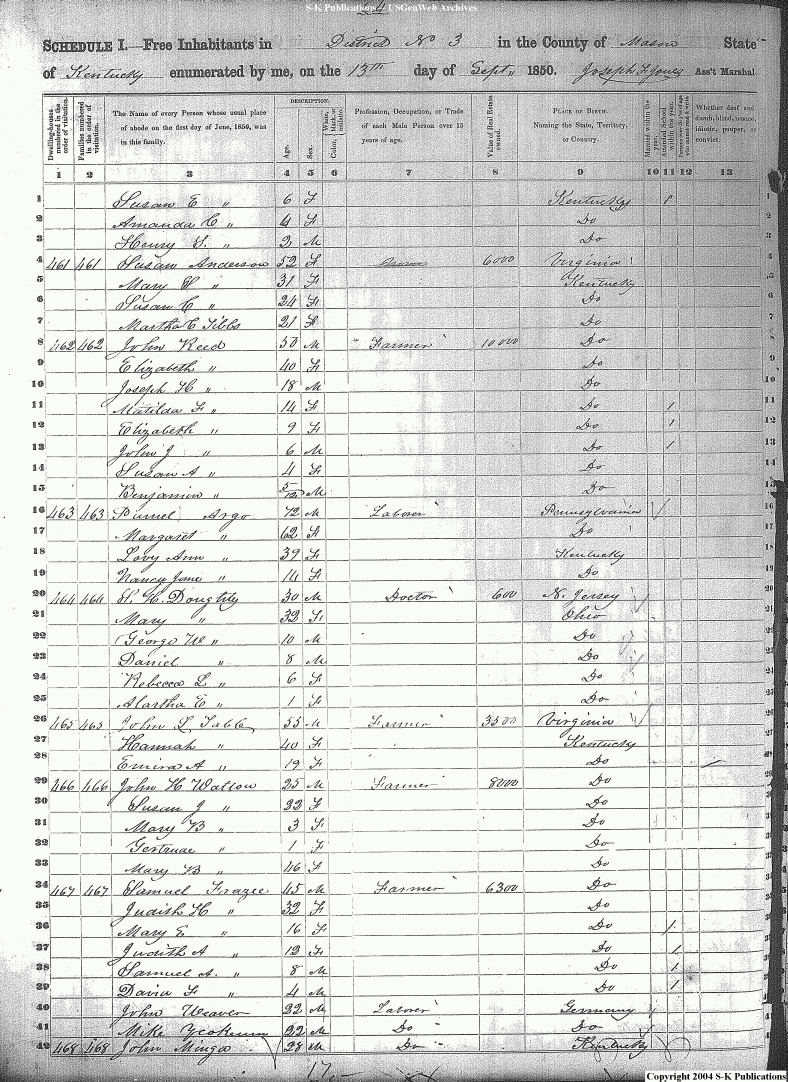 S-K Publications - USGenWeb Archives
SCHEDULE I.—Free Inhabitants in District No 3 in the County of Mason State
of Kentucky enumerated by me, on the 13th day of Sept., 1850. Joseph F Jones Ass't Marshal
DESCRIPTION.
Dwelling-houses numbered in the order of visitation. Families numbered in the order of visitation. The Name of every Person whose usual place of abode on the first day of June, 1850, was in this family. Age. Sex. Color, White, black, or mulatto. Profession, Occupation, or Trade of each Male Person over 15 years of age. Value of Real Estate owned. PLACE OF BIRTH. Naming the State, Territory, or Country. Married within the year. Attended School within the year. Whether deaf and dumb, blind, insane, idiotic, pauper, or convict.
1 2 3 4 5 6 7 8 9 10 11 12 13
1 Susan E " 6 F Kentucky 1 1
2 Amanda C " 4 F Do 2
3 Henry T. " 2 M Do 3
4 461 461 Susan Anderson 52 F 6000 Virginia 4
5 Mary " 31 F Kentucky 5
6 Susan C " 24 F Do 6
7 Martha C Tibbs 21 F Do 7
8 462 462 John Reed 50 M " Farmer 10 000 Do 8
9 Elizabeth " 40 F Do 9
10 Joseph H " 18 M Do 10
11 Matilda F " 14 F Do 1 11
12 Elizabeth " 9 F Do 1 12
13 John J " 6 M Do 1 13
14 Susan A " 4 F Do 14
15 Benjamin " 5/12 M Do 15
16 463 463 Purnel Argo 72 M Laborer Pennsylvania 16
17 Margaret " 62 F Do 17
18 Lovy Ann " 39 F Kentucky 18
19 Nancy Jane " 14 F Do 19
20 464 464 H. Doughty 30 M Doctor 600 N. Jersey
21 Mary " 32 F Ohio
22 George W " 10 M Do
23 Daniel " 8 M Do
24 Rebecca L " 6 F Do
25 Martha E " 1 F Do
26 465 465 John L Tabb 55 M Farmer 3500 Virginia
27 Hannah " 40 F Kentucky
28 Emira A " 19 F Do
29 466 466 John H Walton 25 M Farmer 8000 Do
30 Susan J " 22 F Do
31 Mary B " 3 F Do
32 Gertrude " 1 F Do
33 Mary B " 46 F Do
34 467 467 Samuel Frazee 45 M Farmer 6300 Do
35 Judith H " 32 F Do
36 Mary E " 16 F Do 1
37 Judith A " 12 F Do 1
38 Samuel A. " 8 M Do 1
39 David F " 4 M Do 1
40 John Weaver 22 M Laborer Germany
41 Mike 22 M Do Do
42 468 468 John Minga 28 M Do Kentucky
Copyright 2004 S-K Publications